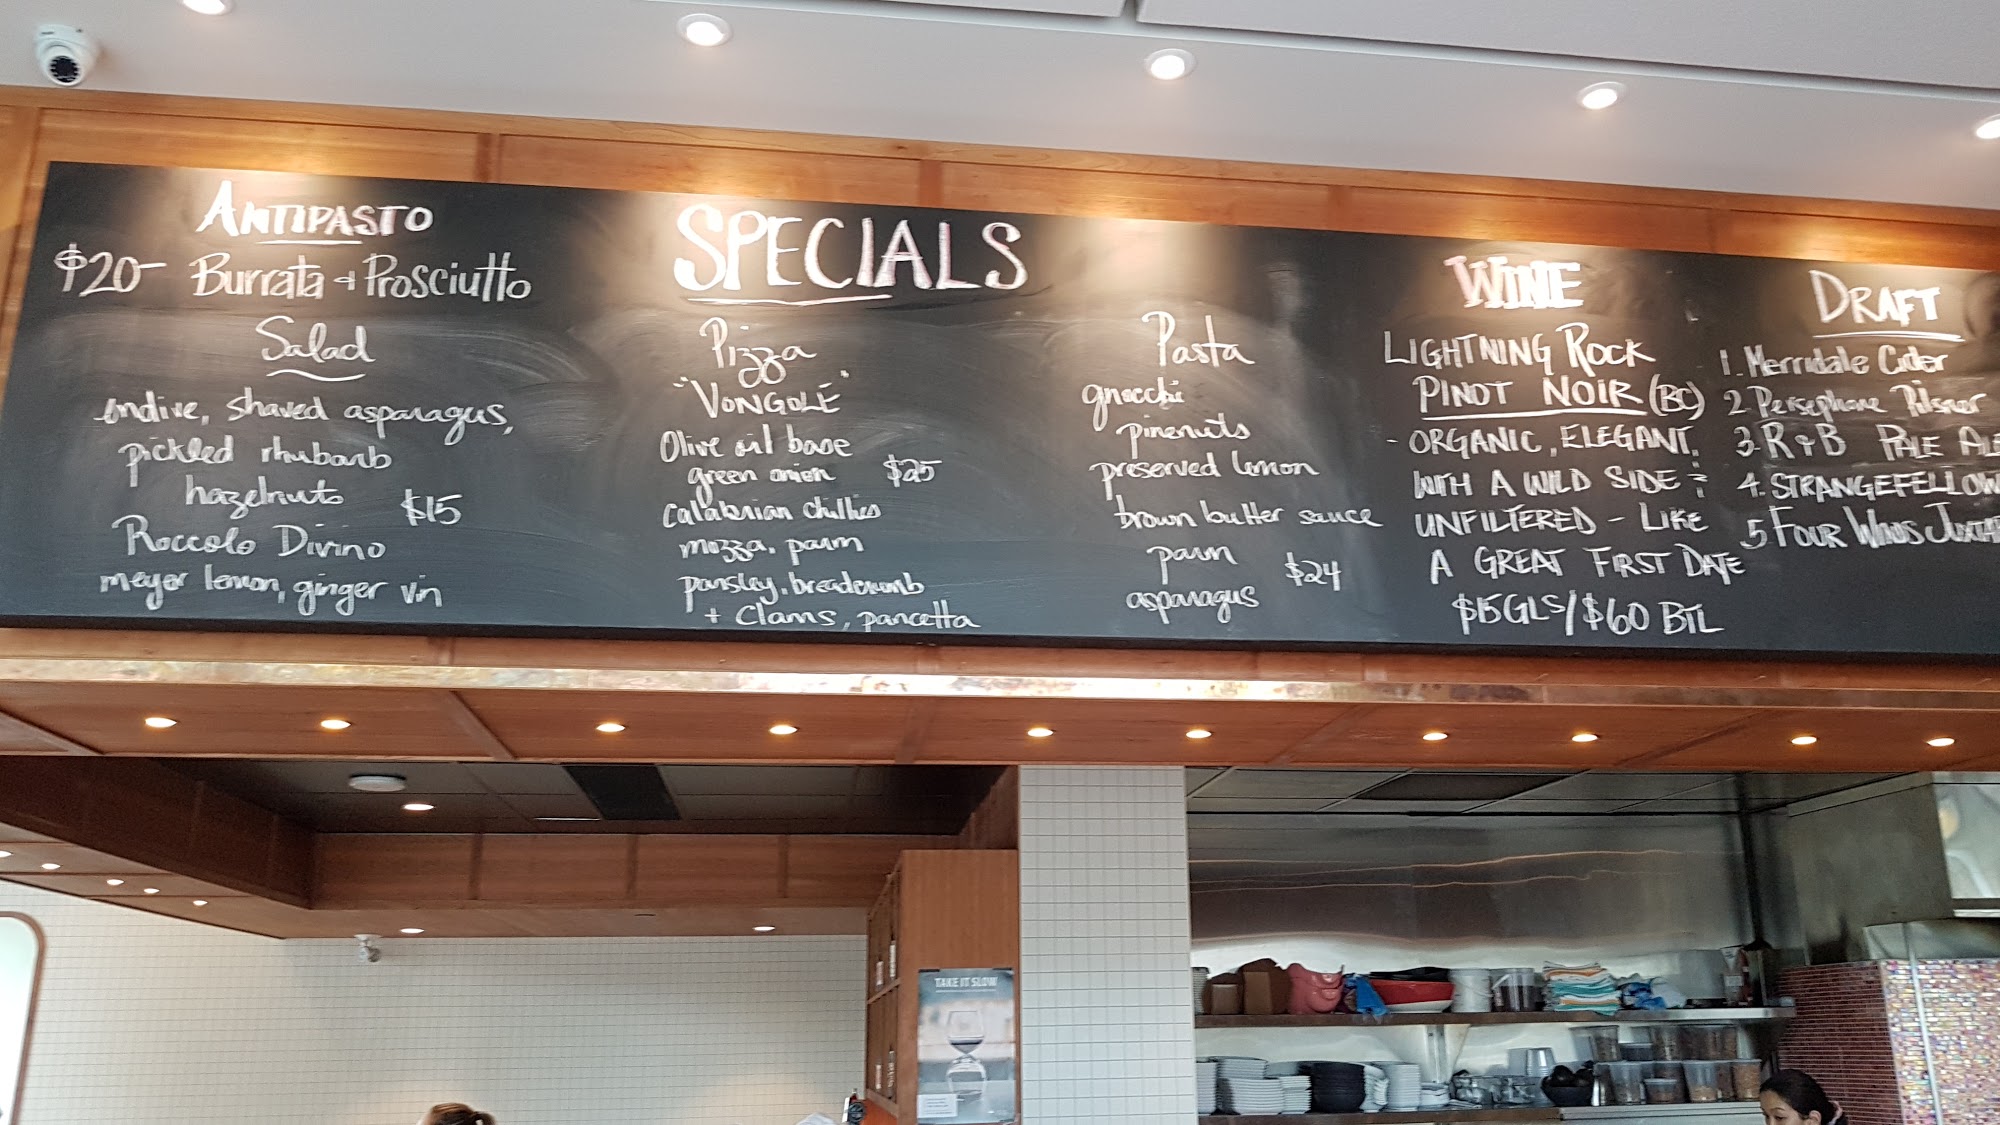 ANTIPASTO
$20- Burrata + Prosciutto
Salad
endive, shaved asparagus,
pickled rhubarb
hazelnuts $15
Roccolo Divino
meyer lemon, ginger vin
SPECIALS
Pizza
"VONGOLE"
Olive oil base
green onion $25
calabrian chillies
mozza, parm
parsley, breadcrumb
+ Clams, pancetta
Pasta
gnocchi
pinenuts
preserved lemon
brown butter sauce
parm $24
asparagus
WINE
LIGHTNING ROCK
PINOT NOIR (BC)
- ORGANIC, ELEGANT,
WITH A WILD SIDE :
UNFILTERED - LIKE
A GREAT FIRST DATE
$15GLS/$60 BTL
DRAFT
1. Merridale Cider
2 Persephone Pilsner
3. R+B PALE
4. STRANGEFELLOW
5 FOUR WINDS
TAKE IT SLOW